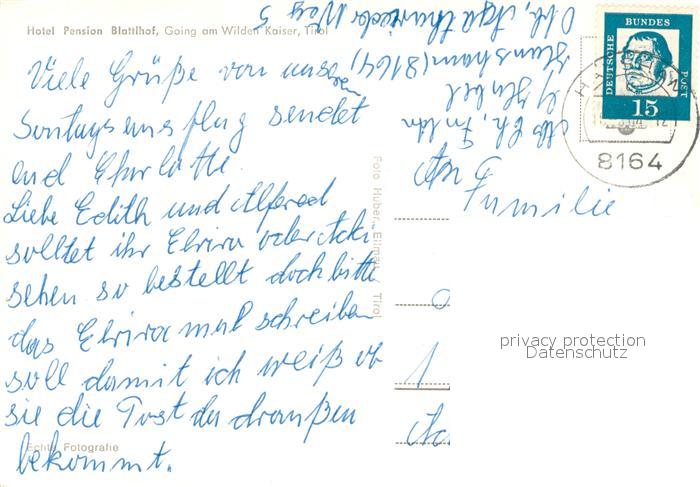 Hotel Pension Blattlhof, Going am Wilden Kaiser, Tirol
Viele Grüße von unseren
Sontagsausflug sendet
und Charlotte
Liebe Edith und Alfred
solltet ihr Elvira oder
sehen so bestellt doch bitte
das Elvira mal schreiben
soll damit ich weiß ob
sie die Post da draußen
bekommt.
Echte Fotografie
Foto Huber, Ellmau / Tirol
Weg 5
(8164)
Abs.
An
Familie
DEUTSCHE BUNDESPOST
15
8164
privacy protection
Datenschutz